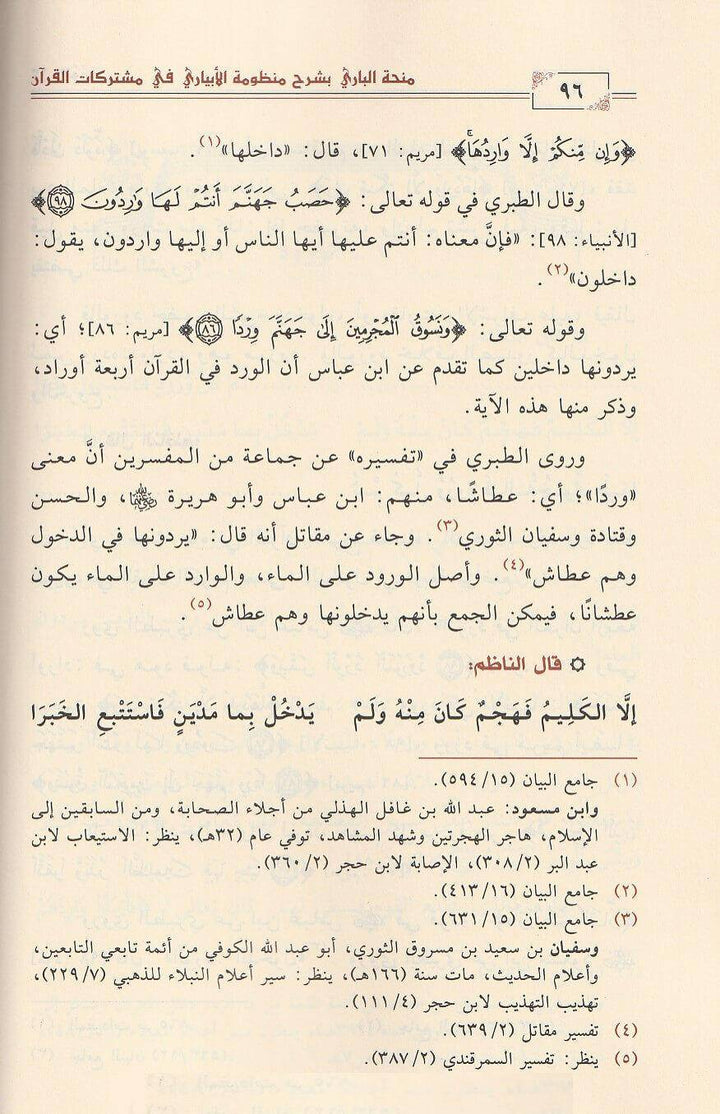 منحة الباري بشرح منظومة الأبياري في مشتركات القرآن
٩٦
﴿وَإِن مِّنكُمْ إِلَّا وَارِدُهَاۚ﴾ [مريم: ٧١]، قال: «داخلها»(١).
وقال الطبري في قوله تعالى: ﴿حَصَبُ جَهَنَّمَ أَنتُمْ لَهَا وَارِدُونَ ٩٨﴾
[الأنبياء: ٩٨]: «فإنَّ معناه: أنتم عليها أيها الناس أو إليها واردون، يقول:
داخلون»(٢).
وقوله تعالى: ﴿وَنَسُوقُ الْمُجْرِمِينَ إِلَىٰ جَهَنَّمَ وِرْدًا ٨٦﴾ [مريم: ٨٦]؛ أي:
يردونها داخلين كما تقدم عن ابن عباس أن الورد في القرآن أربعة أوراد،
وذكر منها هذه الآية.
وروى الطبري في «تفسيره» عن جماعة من المفسرين أنَّ معنى
«وردًا»؛ أي: عطاشًا، منهم: ابن عباس وأبو هريرة ﷺ، والحسن
وقتادة وسفيان الثوري(٣). وجاء عن مقاتل أنه قال: «يردونها في الدخول
وهم عطاش»(٤). وأصل الورود على الماء، والوارد على الماء يكون
عطشانًا، فيمكن الجمع بأنهم يدخلونها وهم عطاش(٥).
۞ قال الناظم:
إلَّا الكَلِيمُ فَهَجْمٌ كَانَ مِنْهُ وَلَمْ يَدْخُلْ بِما مَدْيَنٍ فَاسْتَتْبِعِ الخَبَرَا
(١) جامع البيان (١٥/ ٥٩٤).
وابن مسعود: عبد الله بن غافل الهذلي من أجلاء الصحابة، ومن السابقين إلى
الإسلام، هاجر الهجرتين وشهد المشاهد، توفي عام (٣٢هـ)، ينظر: الاستيعاب لابن
عبد البر (٢/ ٣٠٨)، الإصابة لابن حجر (٢/ ٣٦٠).
(٢) جامع البيان (١٦/ ٤١٣).
(٣) جامع البيان (١٥/ ٦٣١).
وسفيان بن سعيد بن مسروق الثوري، أبو عبد الله الكوفي من أئمة تابعي التابعين،
وأعلام الحديث، مات سنة (١٦٦هـ)، ينظر: سير أعلام النبلاء للذهبي (٧/ ٢٢٩)،
تهذيب التهذيب لابن حجر (٤/ ١١١).
(٤) تفسير مقاتل (٢/ ٦٣٩).
(٥) ينظر: تفسير السمرقندي (٢/ ٣٨٧).